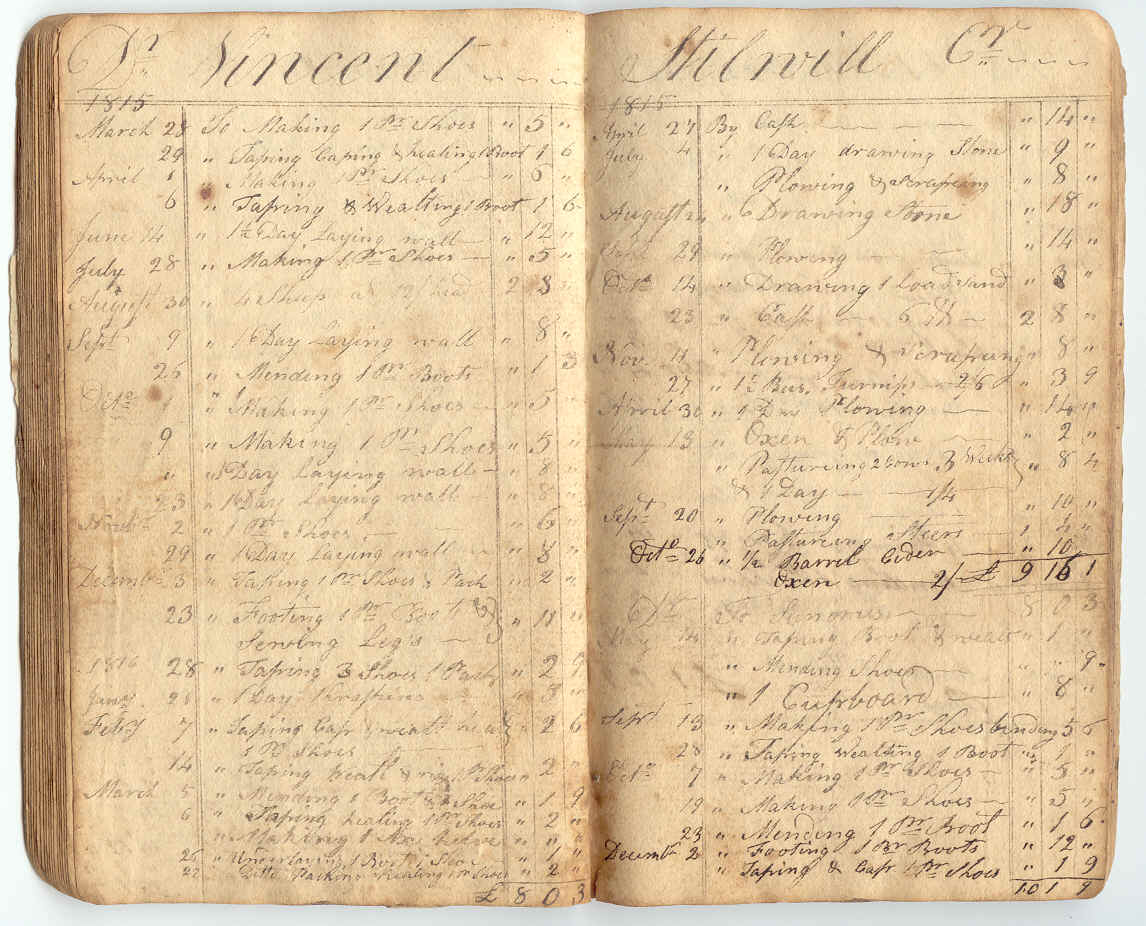 Dr Vincent
1815
March 28 To Making 1 Pr Shoes " 5 "
29 " Taping Caping & healing 1 Boot 1 6
April 1 " Making 1 Pr Shoes " 5 "
6 " Taping & Wealting 1 Boot 1 6
June 14 " 1½ Day Laying wall " 12 "
July 28 " Making 1 Pr Shoes " 5 "
August 30 " 4 Sheep 2 8
Sept 9 " 1 Day Laying wall 8 "
26 " Mending 1 Pr Boots " 1 3
Octo 1 " Making 1 Pr Shoes " 5 "
9 " Making 1 Pr Shoes " 5 "
" " 1 Day Laying wall " 8 "
23 " 1 Day Laying wall " 8 "
2 " 1 Pr Shoes " 6 "
29 " 1 Day Laying wall " 8 "
Decembr 3 " Taping 1 Pr Shoes 2 "
23 " Footing 1 Pr Boots & " 11 "
Sewing Legs
1816 28 " Taping 3 Shoes 1 Patch " 2 9
Jany 28 " 1 Day 8 "
Feby 7 " Taping Cap & 2 6
Shoes
14 " Taping 1 Pr Shoes 2 "
March 5 " Mending 1 Boot & Shoe " 1 9
6 " Taping healing 1 Pr Shoes " 2 "
" Making 1 Axe
26 " Underlaying 1 Boot 1 Shoe " 1 "
27 " Ditto 1 Pr Shoes " 2 "
£ 8 0 3
Stilwill Cr
1815
April 27 By Cash " 14 "
July 4 " 1 Day drawing Stone " 9 "
" Plowing & Scraping " 8 "
August " Drawing Stone " 18 "
29 " Plowing " 14 "
Octo 14 " Drawing 1 Load Sand " 3 "
23 " Cash 2 8 "
Nov. 11 " Plowing & Scraping " 8 "
27 " 1½ Bus. Turnips 2/6 " 3 9
April 30 " 1 Day Plowing " 14 "
May 13 " Oxen & Plow " 2 "
" Pasturing 2 Cows 3 Weeks " 8 4
& 1 Day 1/4
Sept 20 " Plowing " 10 "
" Pasturing Steers 1 4 "
Octo 26 " ½ Barrel Cider " 10
Oxen 2/ £ 9 16 1
Dr To 8 0 3
May 14 " Taping Boot & wealt " 1 "
" Mending Shoes " " 9
" 1 Cupboard " 8 "
Sept 13 " Making 1 Pr Shoes binding 5 6
28 " Taping wealting 1 Boot " 1 "
Octo 7 " Making 1 Pr Shoes " 5 "
19 " Making 1 Pr Shoes " 5 "
23 " Mending 1 Pr Boot " 1 6
Decembr 2 " Footing 1 Pr Boots " 12 "
" Taping & Cap 1 Pr Shoes " 1 9
10 1 9